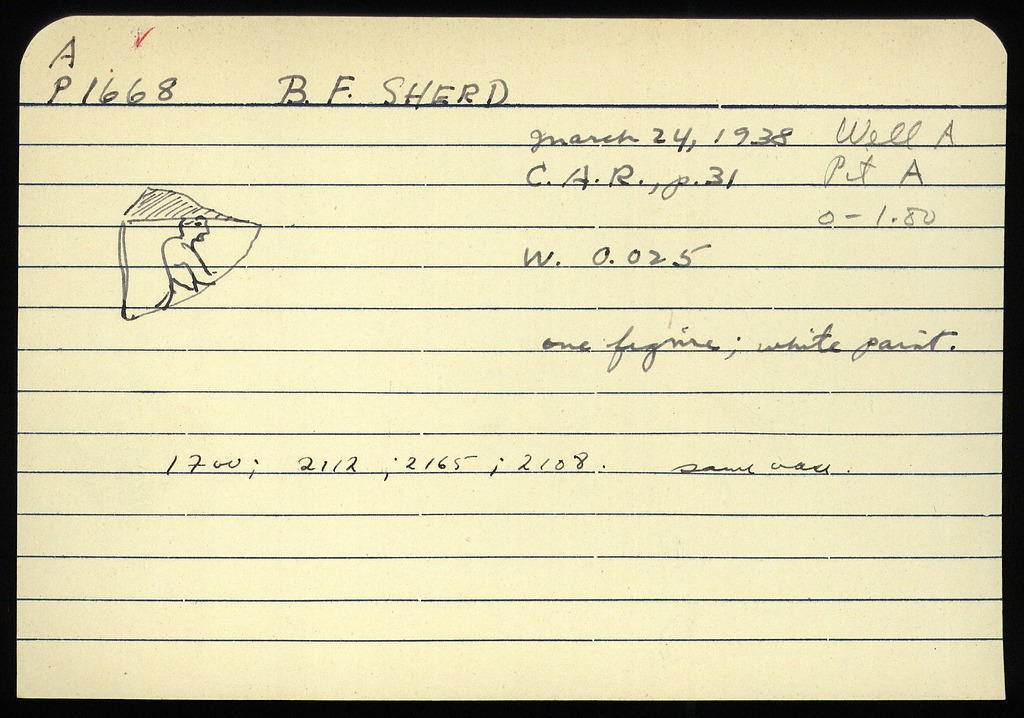 A
P 1668 B. F. SHERD
March 24, 1938 Well A
C. A. R., p. 31 Pit A
0 - 1.80
W. 0.025
one figure; white paint.
1700; 2112 ; 2165 ; 2108. same vase.